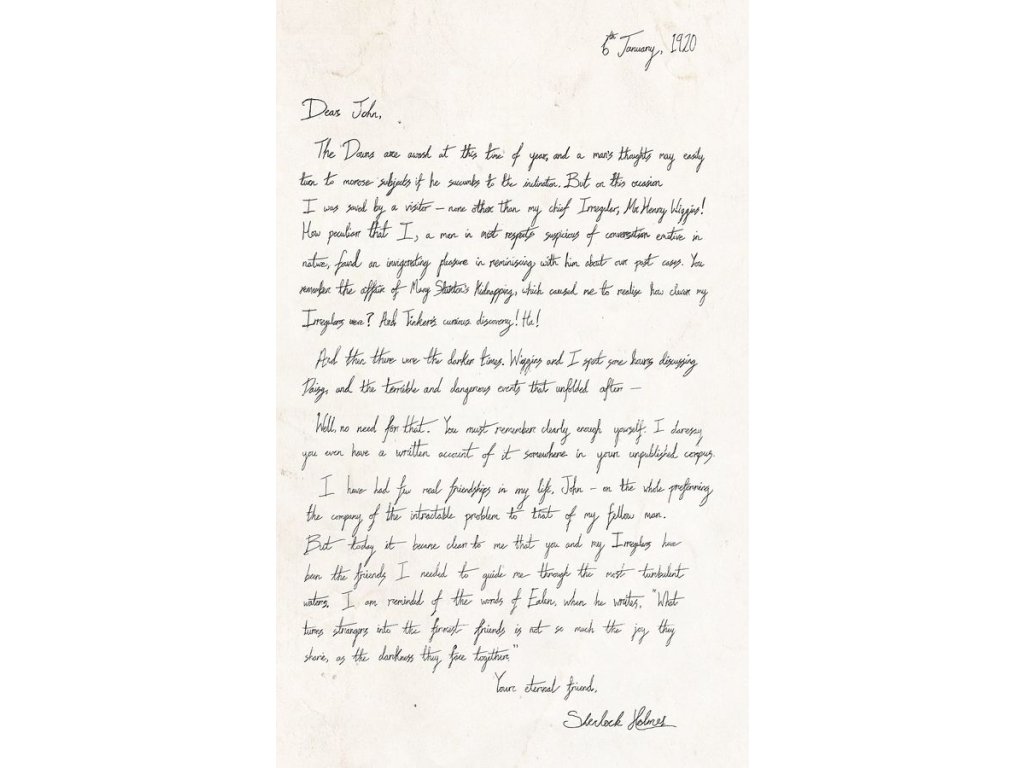 6th January, 1920
Dear John,
The Downs are awash at this time of year, and a man's thoughts may easily
turn to morose subjects if he succumbs to the inclination. But on this occasion
I was saved by a visitor – none other than my chief Irregular, Mr Henry Wiggins!
How peculiar that I, a man in most respects suspicious of conversation emotive in
nature, found an invigorating pleasure in reminiscing with him about our past cases. You
remember the affair of Mary Kidnapping, which caused me to realise how clever my
Irregulars were? And Tinker's curious discovery! Ha!
And then there were the darker times. Wiggins and I spent some hours discussing
Daisy, and the terrible and dangerous events that unfolded after –
Well, no need for that. You must remember clearly enough yourself. I daresay
you even have a written account of it somewhere in your unpublished corpus.
I have had few real friendships in my life, John – on the whole preferring
the company of the intractable problem to that of my fellow man.
But today it became clear to me that you and my Irregulars have
been the friends I needed to guide me through the most turbulent
waters. I am reminded of the words of Ealen, when he writes, "What
turns strangers into the firmest friends is not so much the joy they
share, as the darkness they face together."
Your eternal friend,
Sherlock Holmes